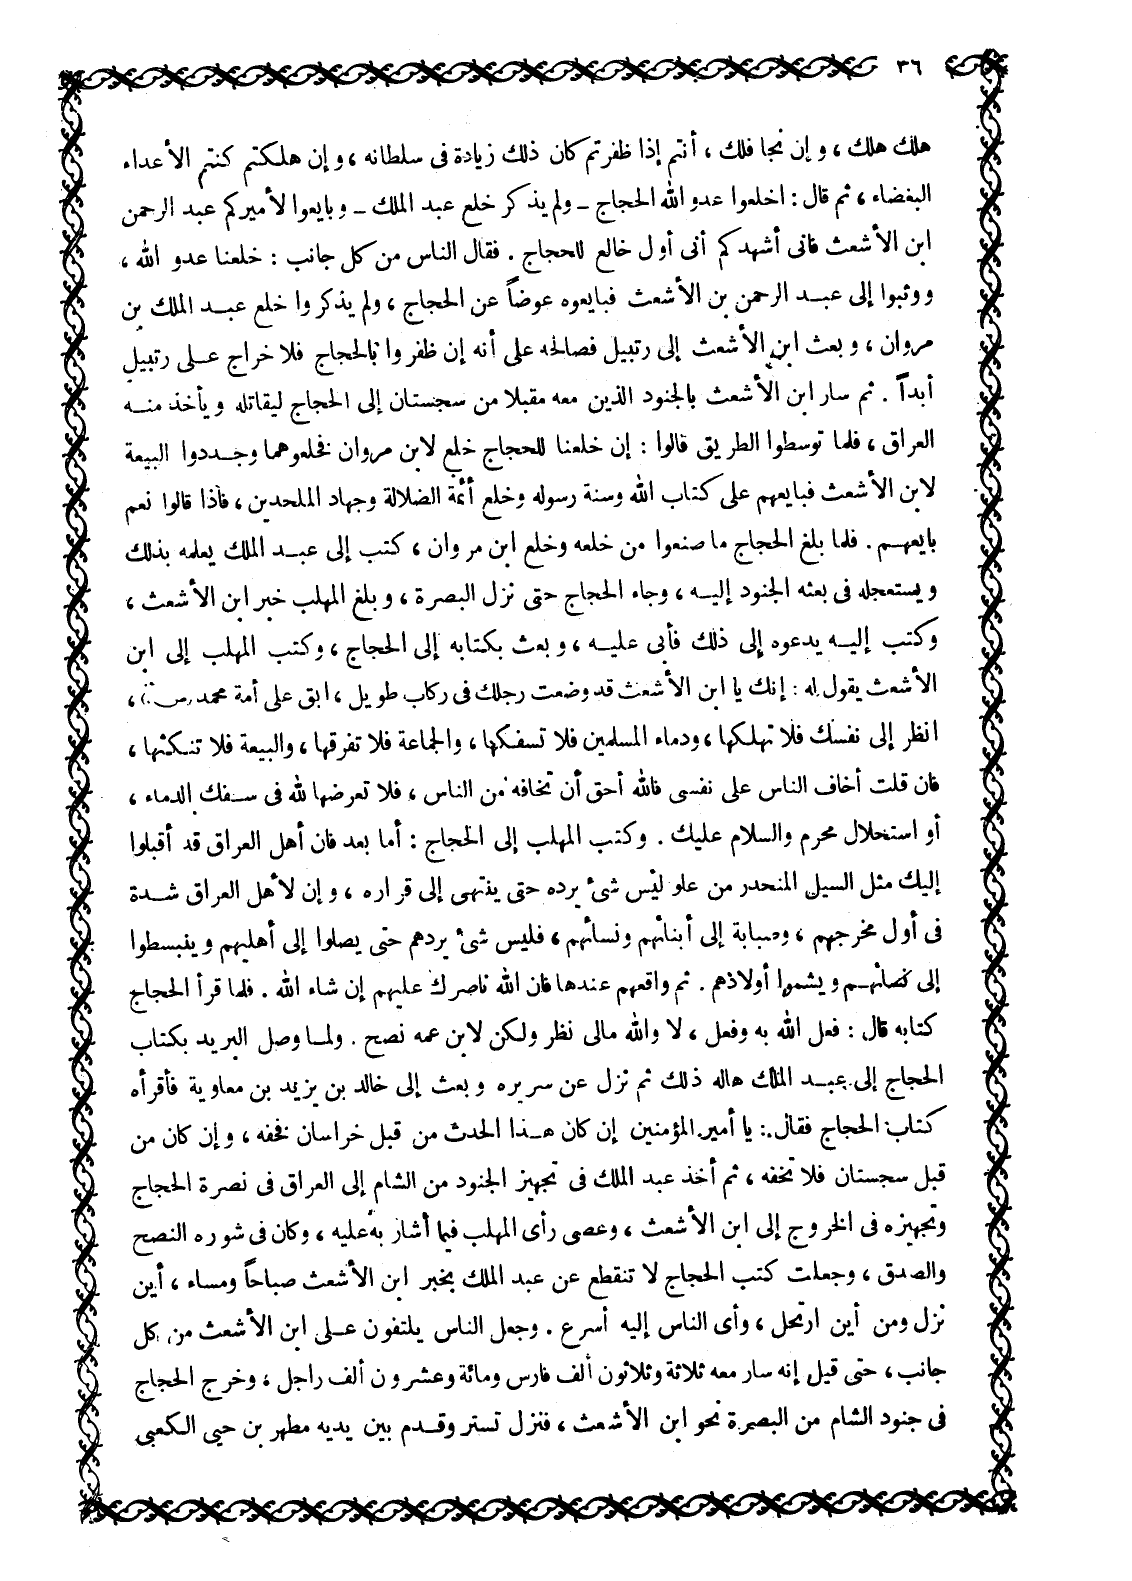 ٣٦
هلك هلك ، و إن نجا فلك ، أنتم إذا ظفرتم كان ذلك زيادة فى سلطانه ، و إن هلكتم كنتم الأعداء
البغضاء ، ثم قال : اخلعوا عدو الله الحجاج ــ ولم يذكر خلع عبد الملك ــ و بايعوا لأميركم عبد الرحمن
ابن الأشعث فانى أشهدكم أنى أول خالع للحجاج . فقال الناس من كل جانب : خلعنا عدو الله ،
ووثبوا إلى عبد الرحمن بن الأشعث فبايعوه عوضاً عن الحجاج ، ولم يذكروا خلع عبد الملك بن
مروان ، و بعث ابن الأشعث إلى رتبيل فصالحه على أنه إن ظفروا بالحجاج فلا خراج على رتبيل
أبداً . ثم سار ابن الأشعث بالجنود الذين معه مقبلا من سجستان إلى الحجاج ليقاتله و يأخذ منه
العراق ، فلما توسطوا الطريق قالوا : إن خلعنا للحجاج خلع لابن مروان فخلعوهما وجددوا البيعة
لابن الأشعث فبايعهم على كتاب الله وسنة رسوله وخلع أئمة الضلالة وجهاد الملحدين ، فاذا قالوا نعم
بايعهم . فلما بلغ الحجاج ما صنعوا من خلعه وخلع ابن مروان ، كتب إلى عبد الملك يعلمه بذلك
و يستعجله فى بعثه الجنود إليه ، وجاء الحجاج حتى نزل البصرة ، و بلغ المهلب خبر ابن الأشعث ،
وكتب إليه يدعوه إلى ذلك فأبى عليه ، و بعث بكتابه إلى الحجاج ، وكتب المهلب إلى ابن
الأشعث يقول له : إنك يا ابن الأشعث قد وضعت رجلك فى ركاب طويل ، ابق على أمة محمد (س) ،
انظر إلى نفسك فلا تهلكها ، ودماء المسلمين فلا تسفكها ، والجماعة فلا تفرقها ، والبيعة فلا تنكثها ،
فان قلت أخاف الناس على نفسى فالله أحق أن تخافه من الناس ، فلا تعرضها لله فى سفك الدماء ،
أو استحلال محرم والسلام عليك . وكتب المهلب إلى الحجاج : أما بعد فان أهل العراق قد أقبلوا
إليك مثل السيل المنحدر من علو ليس شئ يرده حتى ينتهى إلى قراره ، و إن لأهل العراق شدة
فى أول مخرجهم ، وصبابة إلى أبنائهم ونسائهم ، فليس شئ يردهم حتى يصلوا إلى أهليهم و ينبسطوا
إلى نسائهم و يشموا أولادهم . ثم واقعهم عندها فان الله ناصرك عليهم إن شاء الله . فلما قرأ الحجاج
كتابه قال : فعل الله به وفعل ، لا والله مالى نظر ولكن لابن عمه نصح . ولما وصل البريد بكتاب
الحجاج إلى عبد الملك هاله ذلك ثم نزل عن سريره و بعث إلى خالد بن يزيد بن معاوية فأقرأه
كتاب الحجاج فقال : يا أمير المؤمنين إن كان هذا الحدث من قبل خراسان فخفه ، و إن كان من
قبل سجستان فلا تخفه ، ثم أخذ عبد الملك فى تجهيز الجنود من الشام إلى العراق فى نصرة الحجاج
وتجهيزه فى الخروج إلى ابن الأشعث ، وعصى رأى المهلب فيما أشار به عليه ، وكان فى شوره النصح
والصدق ، وجعلت كتب الحجاج لا تنقطع عن عبد الملك بخبر ابن الأشعث صباحاً ومساء ، أين
نزل ومن أين ارتحل ، وأى الناس إليه أسرع . وجعل الناس يلتفون على ابن الأشعث من كل
جانب ، حتى قيل إنه سار معه ثلاثة وثلاثون ألف فارس ومائة وعشرون ألف راجل ، وخرج الحجاج
فى جنود الشام من البصرة نحو ابن الأشعث ، فنزل تستر وقدم بين يديه مطهر بن حيى الكعبى